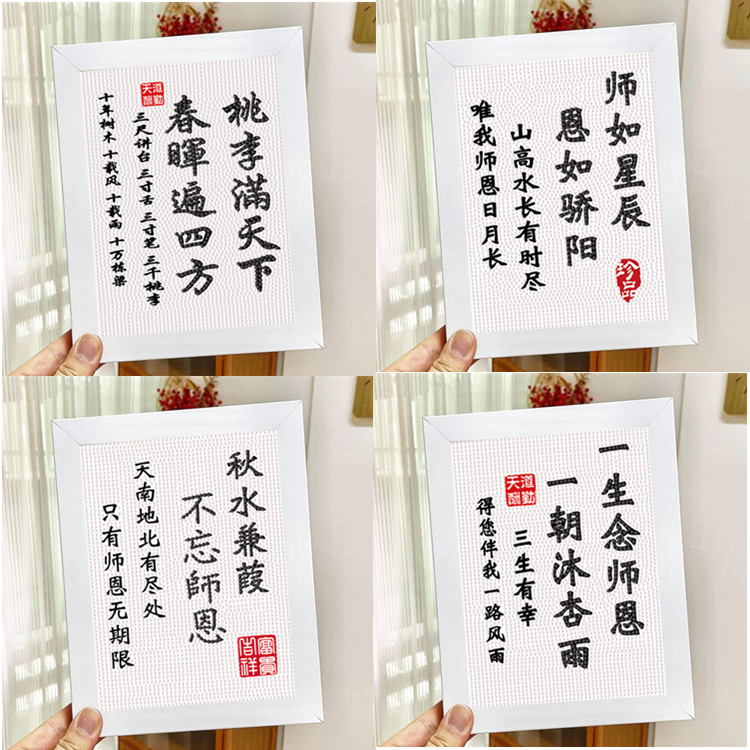 桃李滿天下
春暉遍四方
天道酬勤
三尺讲台 三寸舌 三寸笔 三千桃李
十年树木 十载风 十载雨 十万栋梁
师如星辰
恩如骄阳
山高水长有时尽
唯我师恩日月长
珍品
秋水兼葭
不忘師恩
天南地北有尽处
只有师恩无期限
富貴吉祥
一生念师恩
一朝沐杏雨
天道酬勤
三生有幸
得您伴我一路风雨